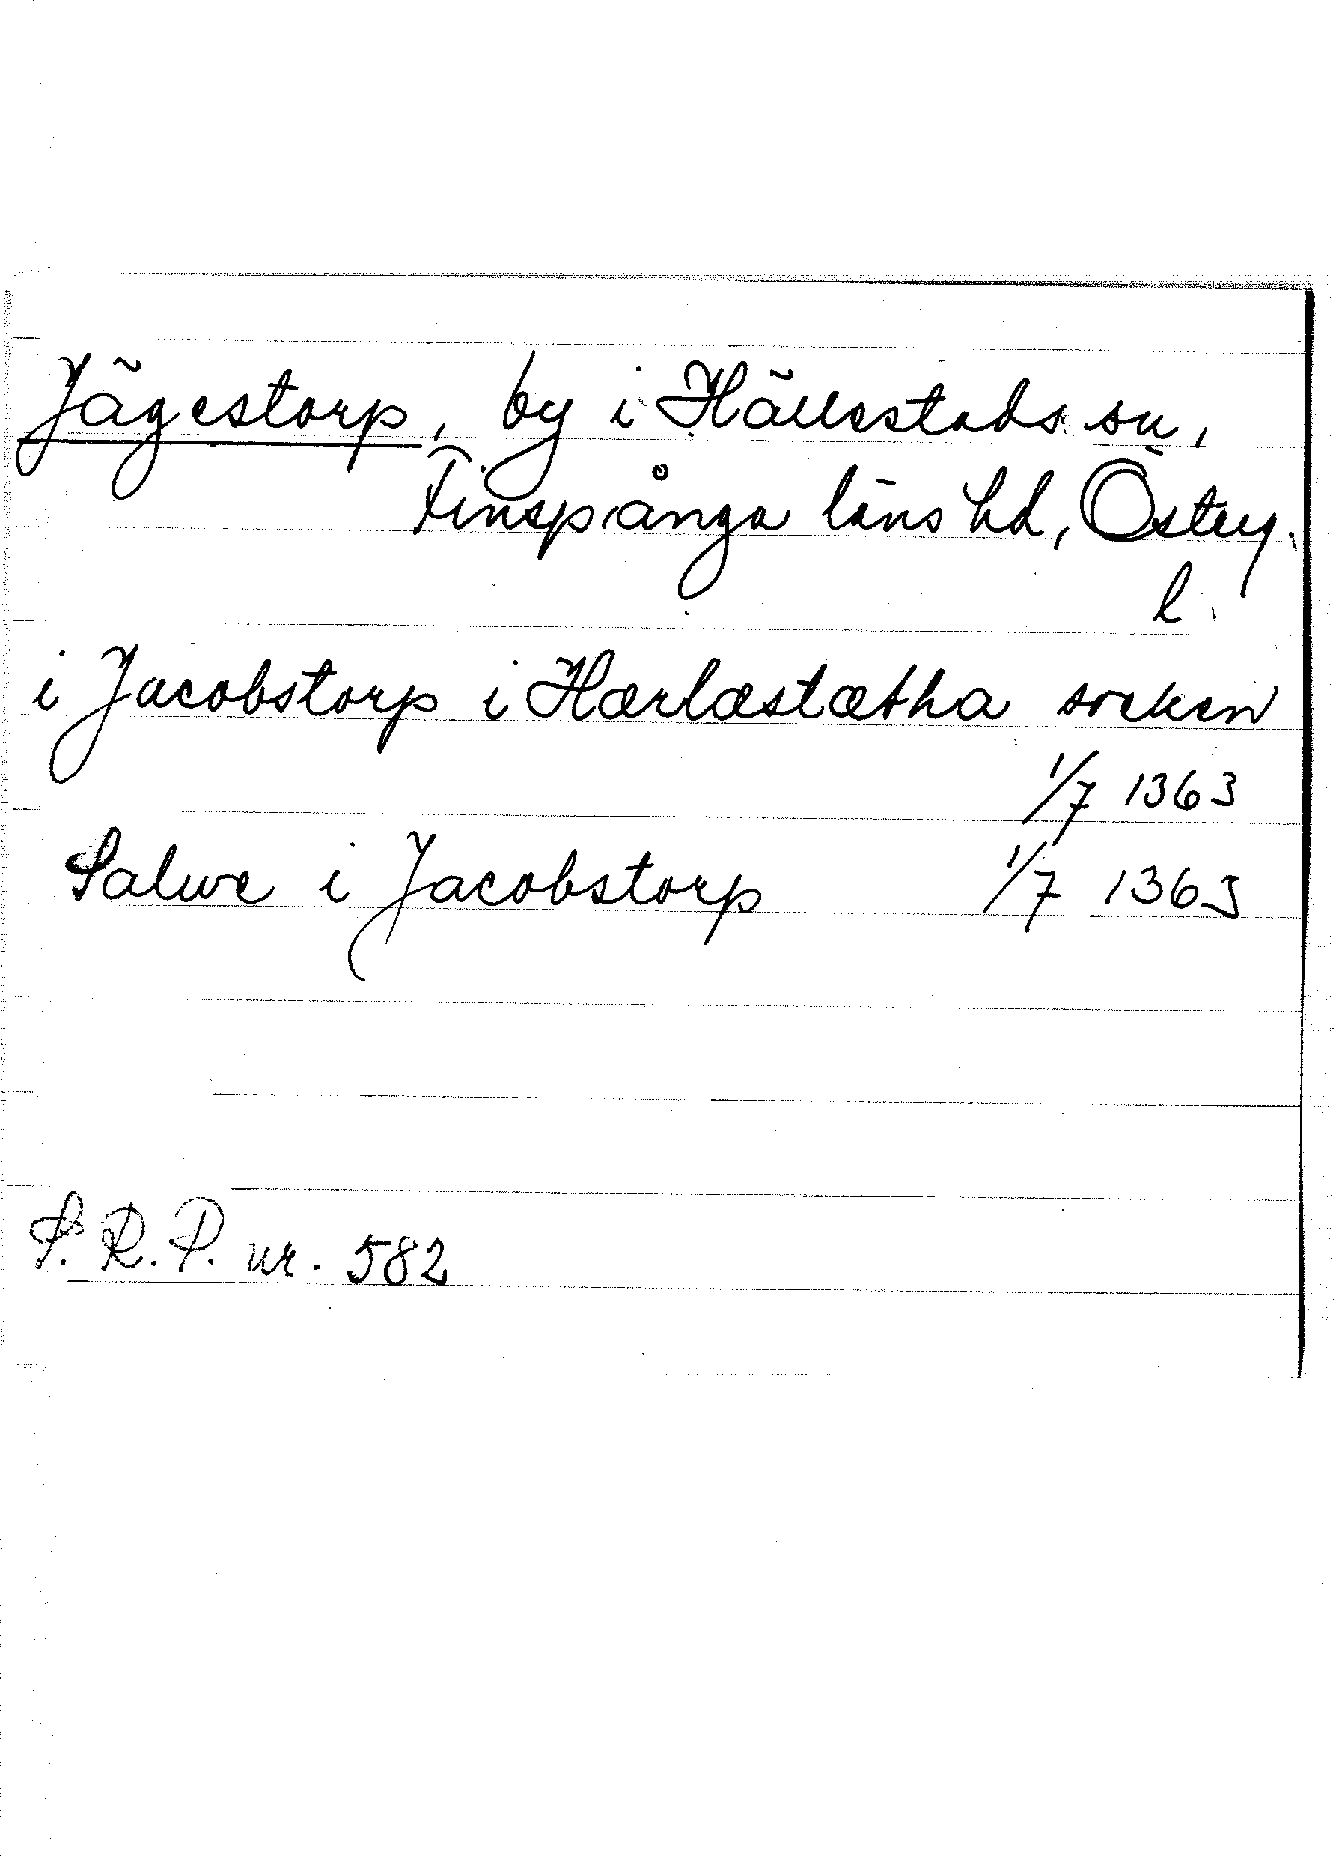 Jägestorp, by i Hällestads sn,
Finspånga läns hd, Österg.
l.
i Jacobstorp i Hærlæstætha socken
1/7 1363
Salwe i Jacobstorp 1/7 1363
S.R.P. nr. 582